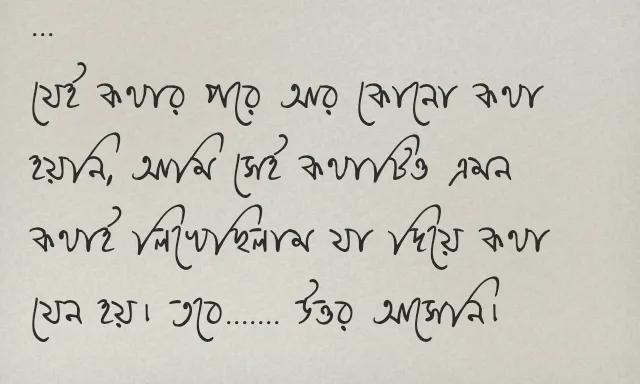 ...
যেই কথার পরে আর কোনো কথা
হয়নি, আমি সেই কথাটিও এমন
কথাই লিখেছিলাম যা দিয়ে কথা
যেন হয়। তবে....... উত্তর আসেনি।